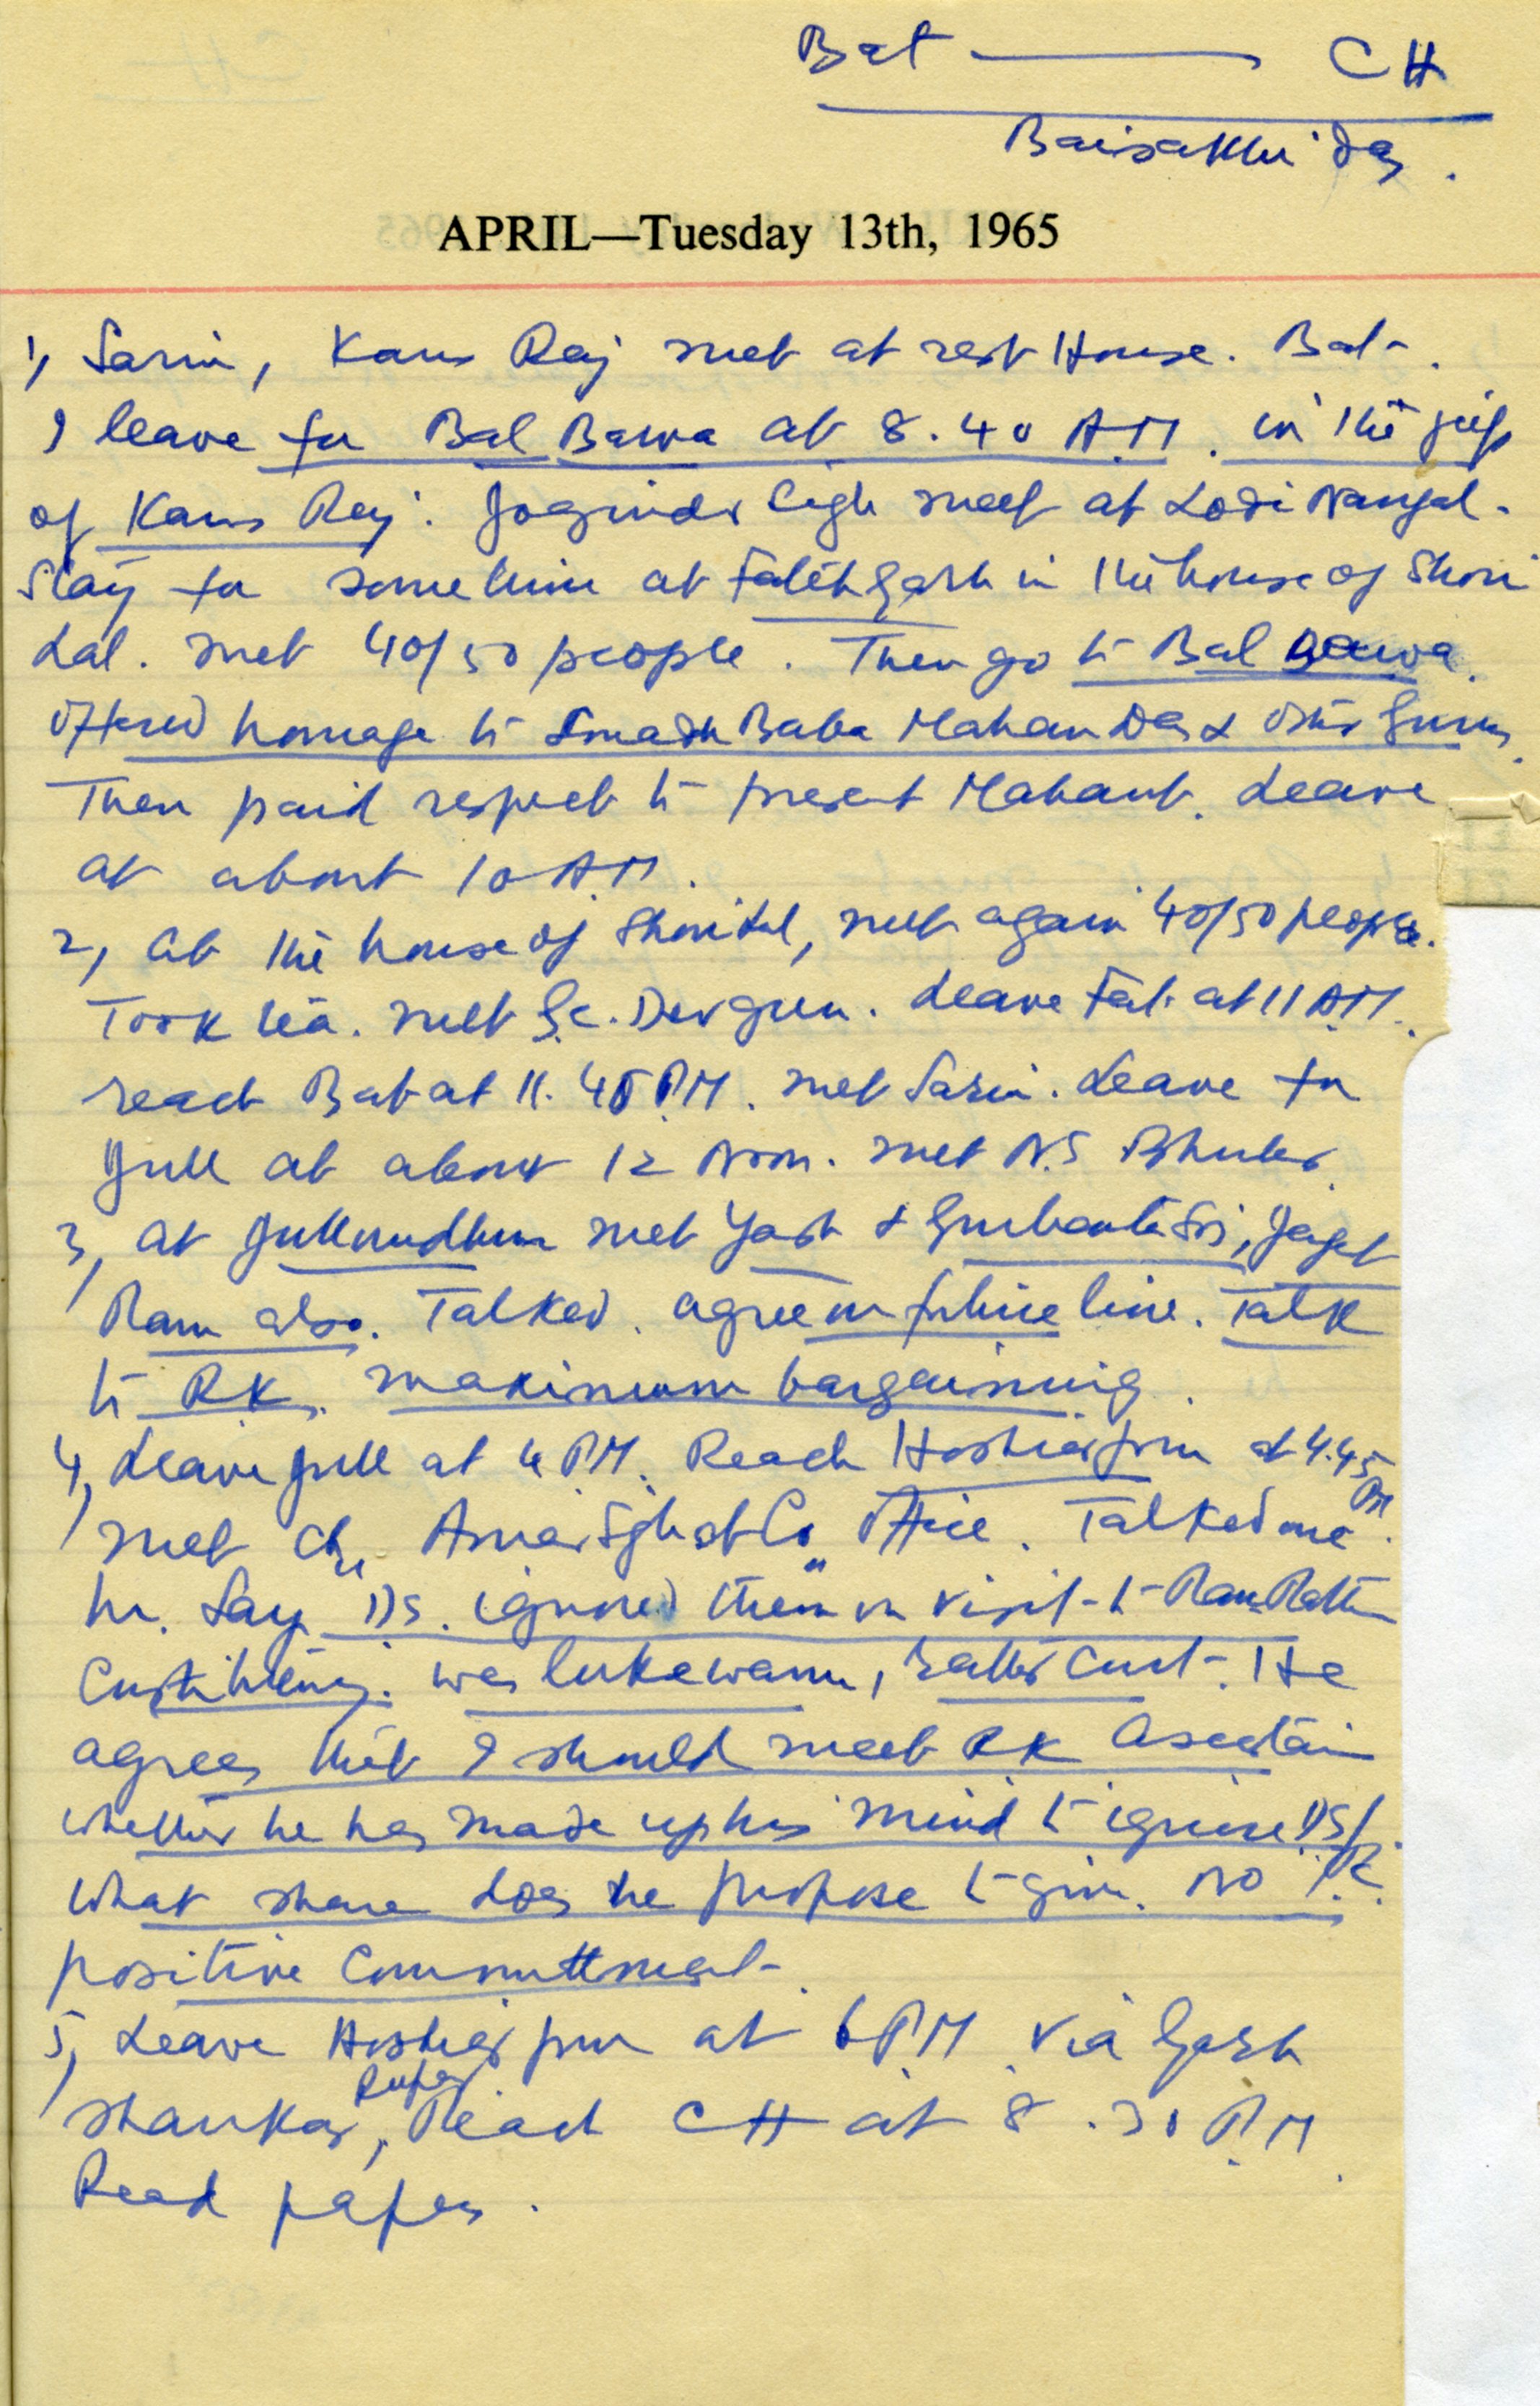 Bat —— CH
Baisakhi day.
APRIL—Tuesday 13th, 1965
1, Sarin, Kans Raj met at rest House. Bat.
I leave for Bal Bawa at 8.40 AM. in the jeep
of Kans Raj. Joginder Sigh meet at Lodi Nangal.
Stay for sometime at Fatehgarh in the house of Shori
Lal. met 40/50 people. Then go to Bal Bawa.
Offered homage to Smadh Baba Mahan Das & other Gurus.
Then paid respect to present Mahant. Leave
at about 10 AM.
2, at the house of Shori Lal, met again 40/50 people.
Took tea. met Devgun. Leave Fat. at 11 AM.
reach Bat at 11.45 PM. met Sarin. Leave for
Jull at about 12 Noon. met N.S
3, at Jullundhur met Yash & Gurbanta Si, Jagat
Ram also. Talked. agree on future line. Talk
to RK. maximum bargaining.
4, Leave Jull at 4 PM. Reach Hoshiarpur at 4.45 PM
met Ch. Amar Sigh at Co. Office. Talked one
hr. Say DS. ignored them on visit to Ram Rattan
Constituency. was lukewarm, rather curt. He
agrees that I should meet RK ascertain
whether he has made up his mind to ignore DS/
What share does he propose to give. No
positive Committment.
5, Leave Hoshiarpur at 6 PM via Garh
Shankar, Rupar, Reach CH at 8.30 PM.
Read papers.